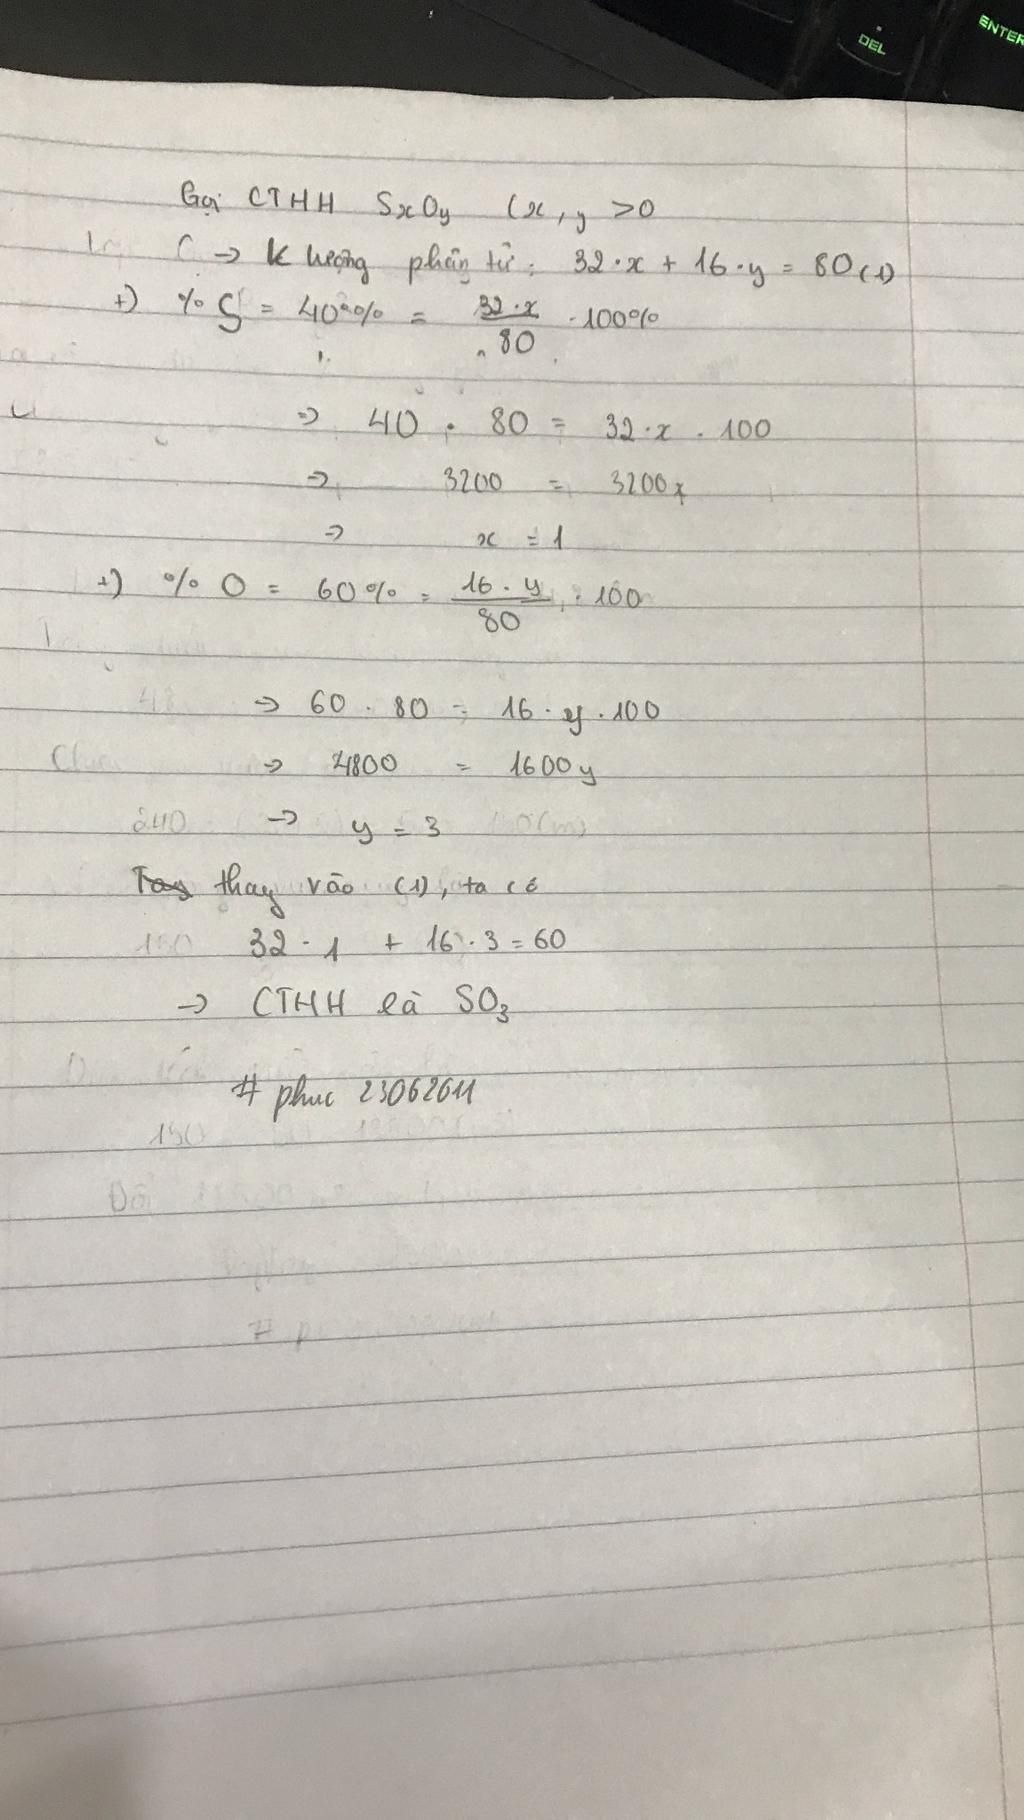 DEL
ENTER
Gọi CTHH SxOy (x, y > 0
→ K lượng phân tử: 32·x + 16·y = 80 (1)
+) % S = 40% = 32·x / 80 · 100%
=> 40 · 80 = 32·x · 100
=> 3200 = 3200x
=> x = 1
+) % O = 60% = 16·y / 80 · 100
=> 60 · 80 = 16·y·100
=> 4800 = 1600y
=> y = 3
thay vào (1), ta có
32·1 + 16·3 = 60
→ CTHH là SO3
# phuc 23062611